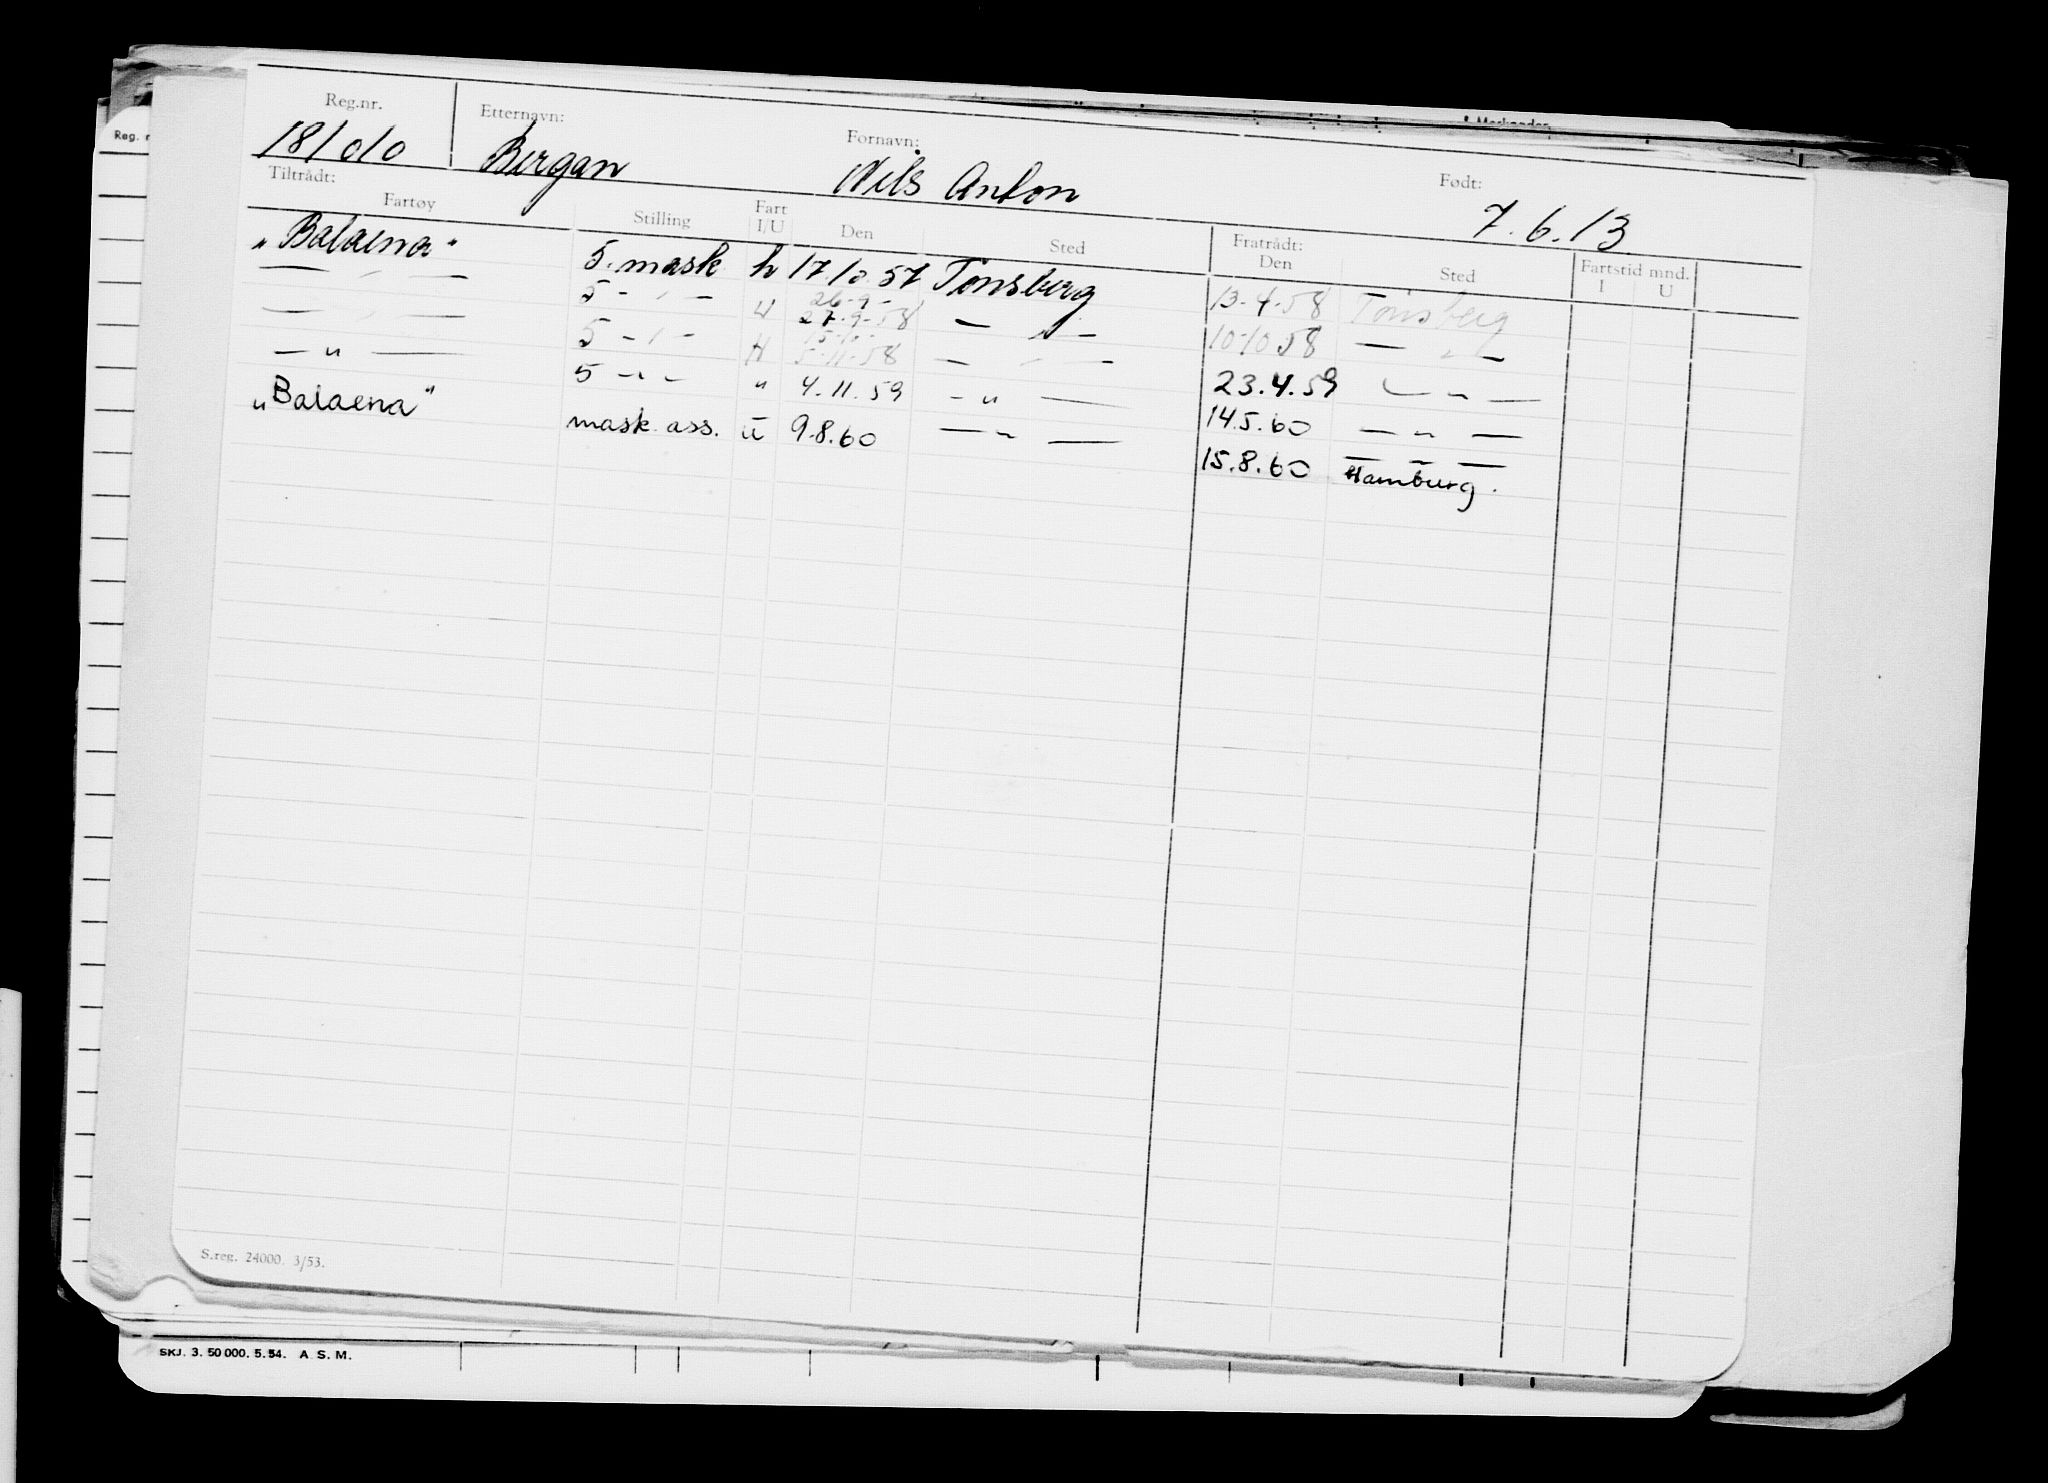 Reg.nr. Etternavn: Fornavn: Født:
18/010 Bergan Nils Anton 7.6.13
Tiltrådt: Fratrådt:
Fartøy Stilling Fart I/U Den Sted Den Sted Fartstid mnd. I U
"Balaena" 5. mask h 17.10.57 Tønsberg 13-4-58 Tønsberg
— " — 5 - " - U 26-9- 27-9-58 — " — 10-10 58 — " —
— " — 5 - " - H 15-10- 5-11-58 — " — 23.4.59 — " —
— " — 5 - " - " 4.11.59 - " — 14.5.60 — " —
"Balaena" mask. ass. u 9.8.60 — " — 15.8.60 — " — Hamburg.
S.reg. 24000. 3/53.
SKJ. 3. 50 000. 5.54. A S. M.